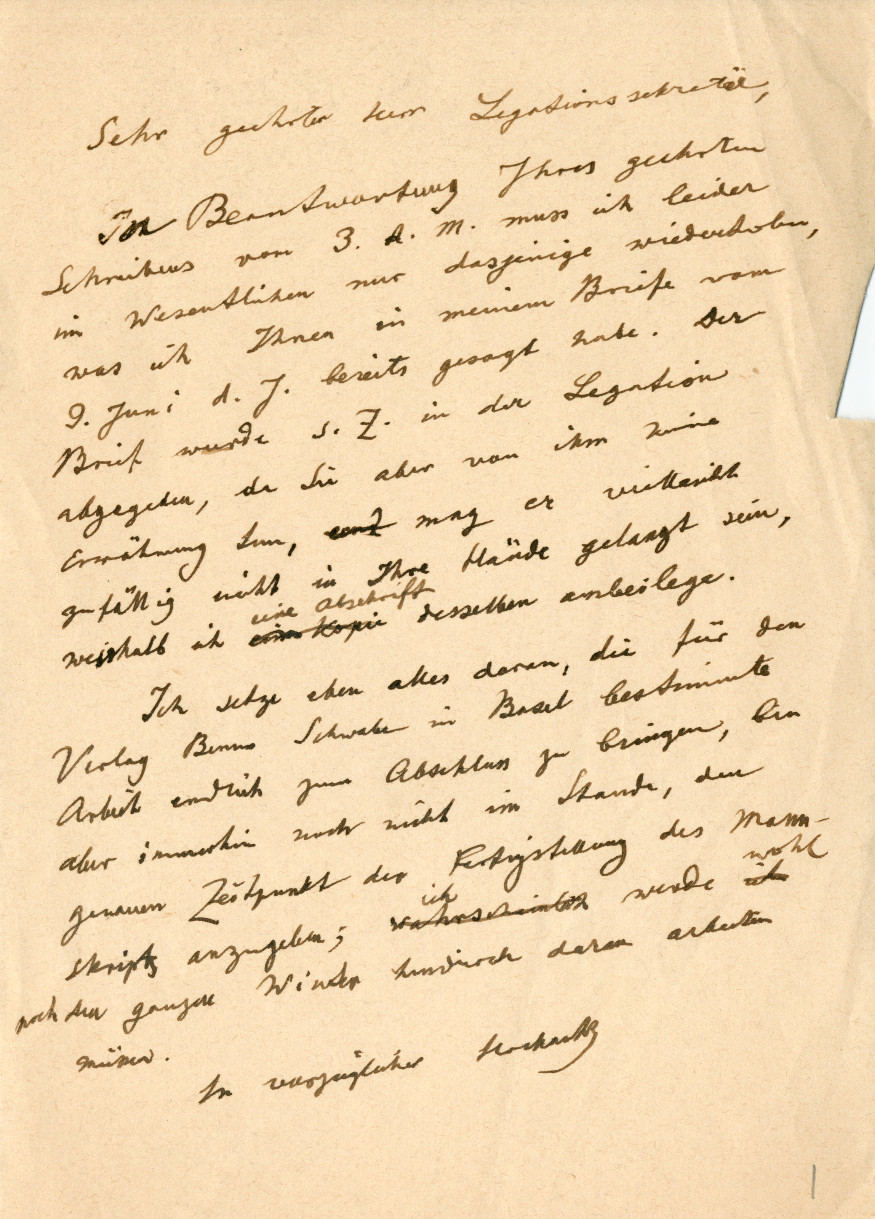 Sehr geehrter Herr Legationssekretär,
In Beantwortung Ihres geehrten
Schreibens vom 3. d. M. muss ich leider
im Wesentlichen nur dasjenige wiederholen,
was ich Ihnen in meinem Briefe vom
9. Juni d. J. bereits gesagt habe. Der
Brief wurde s. Z. in der Legation
abgegeben, da Sie aber von ihm keine
Erwähnung tun, mag er vielleicht
zufällig nicht in Ihre Hände gelangt sein,
eine Abschrift
weshalb ich eine Kopie desselben anbeilege.
Ich setze eben alles daran, die für den
Verlag Benno Schwabe in Basel bestimmte
Arbeit endlich zum Abschluss zu bringen, bin
aber immerhin noch nicht im Stande, den
genauen Zeitpunkt der Fertigstellung des Manu-
ich wohl
skripts anzugeben; wahrscheinlich werde ich
noch den ganzen Winter hindurch daran arbeiten
müssen.
In vorzüglicher Hochacht